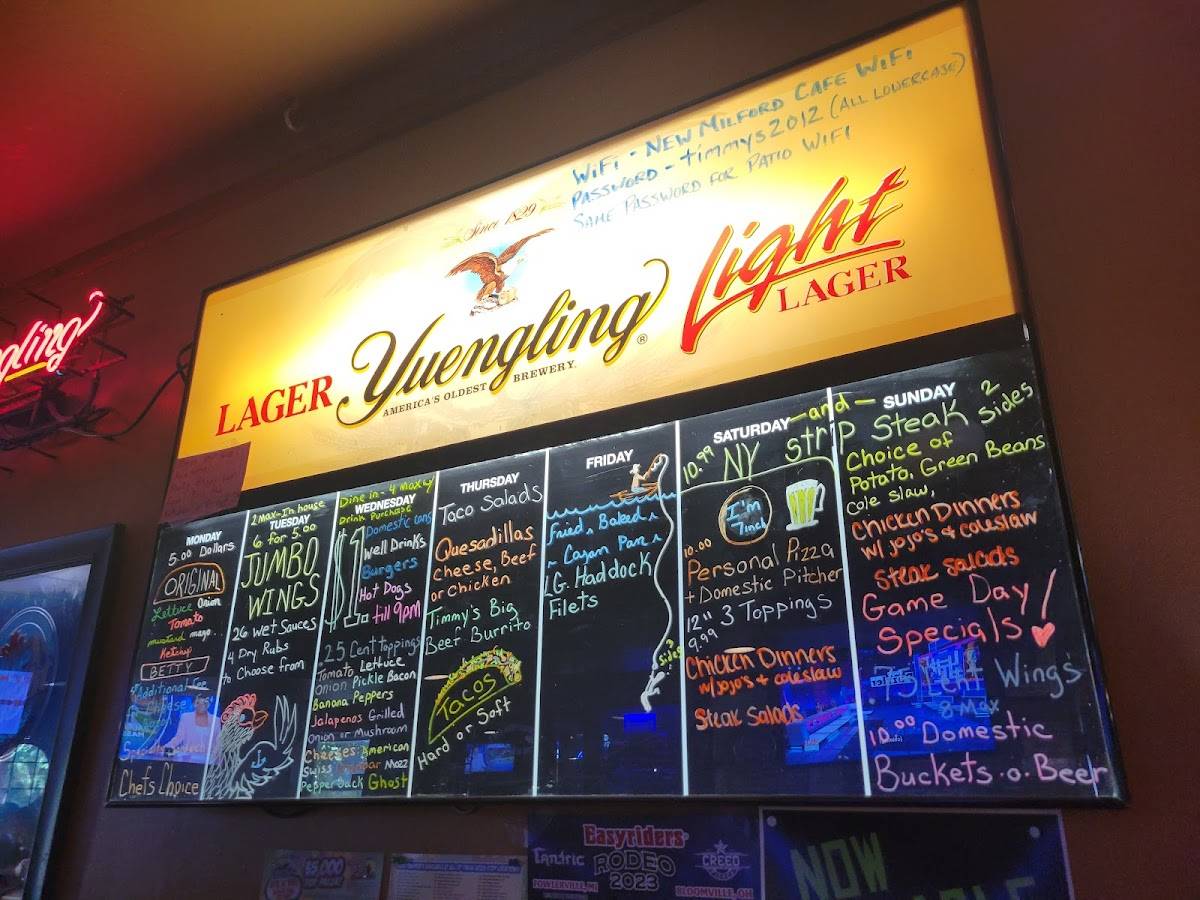 WiFi - New Milford Cafe WiFi
Password - timmys2012 (All Lowercase)
Same Password for Patio WiFi
Since 1829
LAGER Yuengling® Light LAGER
AMERICA'S OLDEST BREWERY.
gling
MONDAY
5.00 Dollars
ORIGINAL
Lettuce onion
Tomato
mustard mayo..
Ketchup
BETTY
Additional
Chef's Choice
2 Max-In house
TUESDAY
6 for 5.00
JUMBO
WINGS
26 Wet Sauces
4 Dry Rubs
to Choose from
Dine in - 4 Max w/
Drink Purchase
WEDNESDAY
$1.
Domestic cans
Well Drinks
Burgers
Hot Dogs
till 9pm
.25 Cent toppings
Tomato Lettuce
Onion Pickle Bacon
Banana Peppers
Jalapenos Grilled
Onion or Mushroom
Cheeses American
Swiss Cheddar Mozz
Pepper Jack Ghost
THURSDAY
Taco Salads
Quesadillas
Cheese, Beef
or Chicken
Timmy's Big
Beef Burrito
TACOS
Hard or Soft
FRIDAY
Fried, Baked,
- Cajan Pan,
LG. Haddock
Filets
2 Sides
SATURDAY -and- SUNDAY
10.99 NY Strip Steak 2 Sides
I'm
7inch
10.00
Personal Pizza
+ Domestic Pitcher
12" 3 Toppings
9.99
Chicken Dinners
w/ jojo's + coleslaw
Steak Salads
Choice of
Potato, Green Beans
Cole Slaw,
Chicken Dinners
w/ jojo's & coleslaw
Steak Salads
Game Day
Specials!
75 Cent Wing's
8 Max
10.00 Domestic
Buckets.o.Beer
$5,000
Easyriders
RODEO
2023
Tantric
CREED
FOWLERVILLE, MI
BLOOMVILLE, OH
NOW